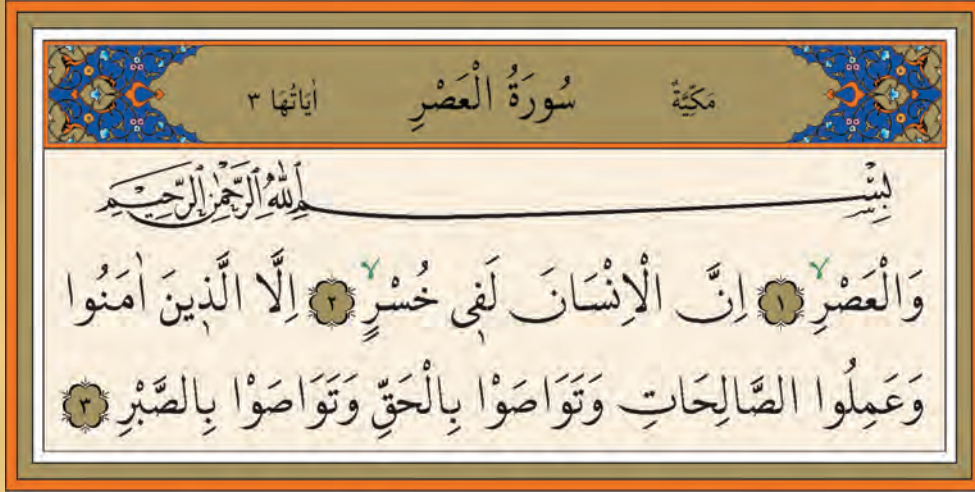 مَكِّيَّةٌ سُورَةُ الْعَصْرِ اٰيَاتُهَا ٣
بِسْمِ اللّٰهِ الرَّحْمٰنِ الرَّحِيمِ
وَالْعَصْرِۙ ﴿١﴾ اِنَّ الْاِنْسَانَ لَف۪ى خُسْرٍۙ ﴿٢﴾ اِلَّا الَّذ۪ينَ اٰمَنُوا
وَعَمِلُوا الصَّالِحَاتِ وَتَوَاصَوْا بِالْحَقِّ وَتَوَاصَوْا بِالصَّبْرِ ﴿٣﴾